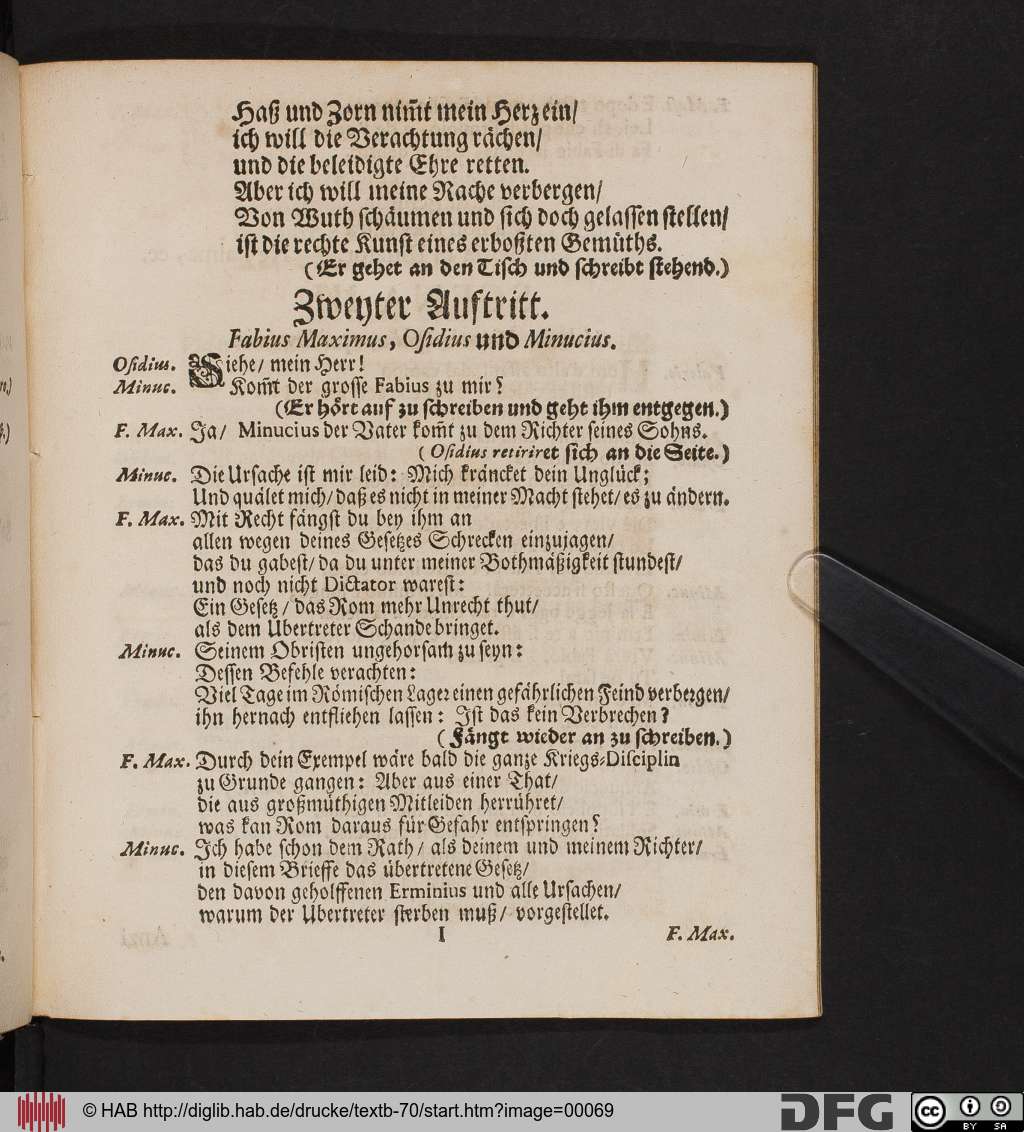 Haß und Zorn nim̃t mein Herz ein/
ich will die Verachtung rächen/
und die beleidigte Ehre retten.
Aber ich will meine Rache verbergen/
Von Wuth schäumen und sich doch gelassen stellen/
ist die rechte Kunst eines erboßten Gemüths.
(Er gehet an den Tisch und schreibt stehend.)
Zweyter Auftritt.
Fabius Maximus, Osidius und Minucius.
Osidius. Siehe/ mein Herr!
Minuc. Kom̃t der grosse Fabius zu mir?
(Er hört auf zu schreiben und geht ihm entgegen.)
F. Max. Ja/ Minucius der Vater kom̃t zu dem Richter seines Sohns.
(Osidius retiriret sich an die Seite.)
Minuc. Die Ursache ist mir leid: Mich kräncket dein Unglück;
Und quälet mich/ daß es nicht in meiner Macht stehet/ es zu ändern.
F. Max. Mit Recht fängst du bey ihm an
allen wegen deines Gesetzes Schrecken einzujagen/
das du gabest/ da du unter meiner Bothmäßigkeit stundest/
und noch nicht Dictator warest:
Ein Gesetz/ das Rom mehr Unrecht thut/
als dem Ubertreter Schande bringet.
Minuc. Seinem Obristen ungehorsam zu seyn:
Dessen Befehle verachten:
Viel Tage im Römischen Lager einen gefährlichen Feind verbergen/
ihn hernach entfliehen lassen: Ist das kein Verbrechen?
(Fängt wieder an zu schreiben.)
F. Max. Durch dein Exempel wäre bald die ganze Kriegs-Disciplin
zu Grunde gangen: Aber aus einer That/
die aus großmüthigen Mitleiden herrühret/
was kan Rom daraus für Gefahr entspringen?
Minuc. Ich habe schon dem Rath/ als deinem und meinem Richter/
in diesem Brieffe das übertretene Gesetz/
den davon geholffenen Erminius und alle Ursachen/
warum der Ubertreter sterben muß/ vorgestellet.
I F. Max.
© HAB http://diglib.hab.de/drucke/textb-70/start.htm?image=00069
DFG
cc BY SA